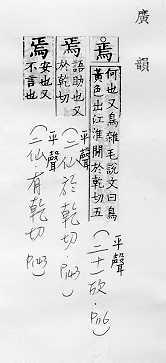 廣韻
焉
何也又鳥雜毛說文曰鳥
黃色出江淮間於乾切五
平聲
(二十一欣·P116)
焉
語助也又
於乾切
平聲
(二仙 於乾切·P143)
焉
安也又
不言也
平聲
(二仙 有乾切 P143)